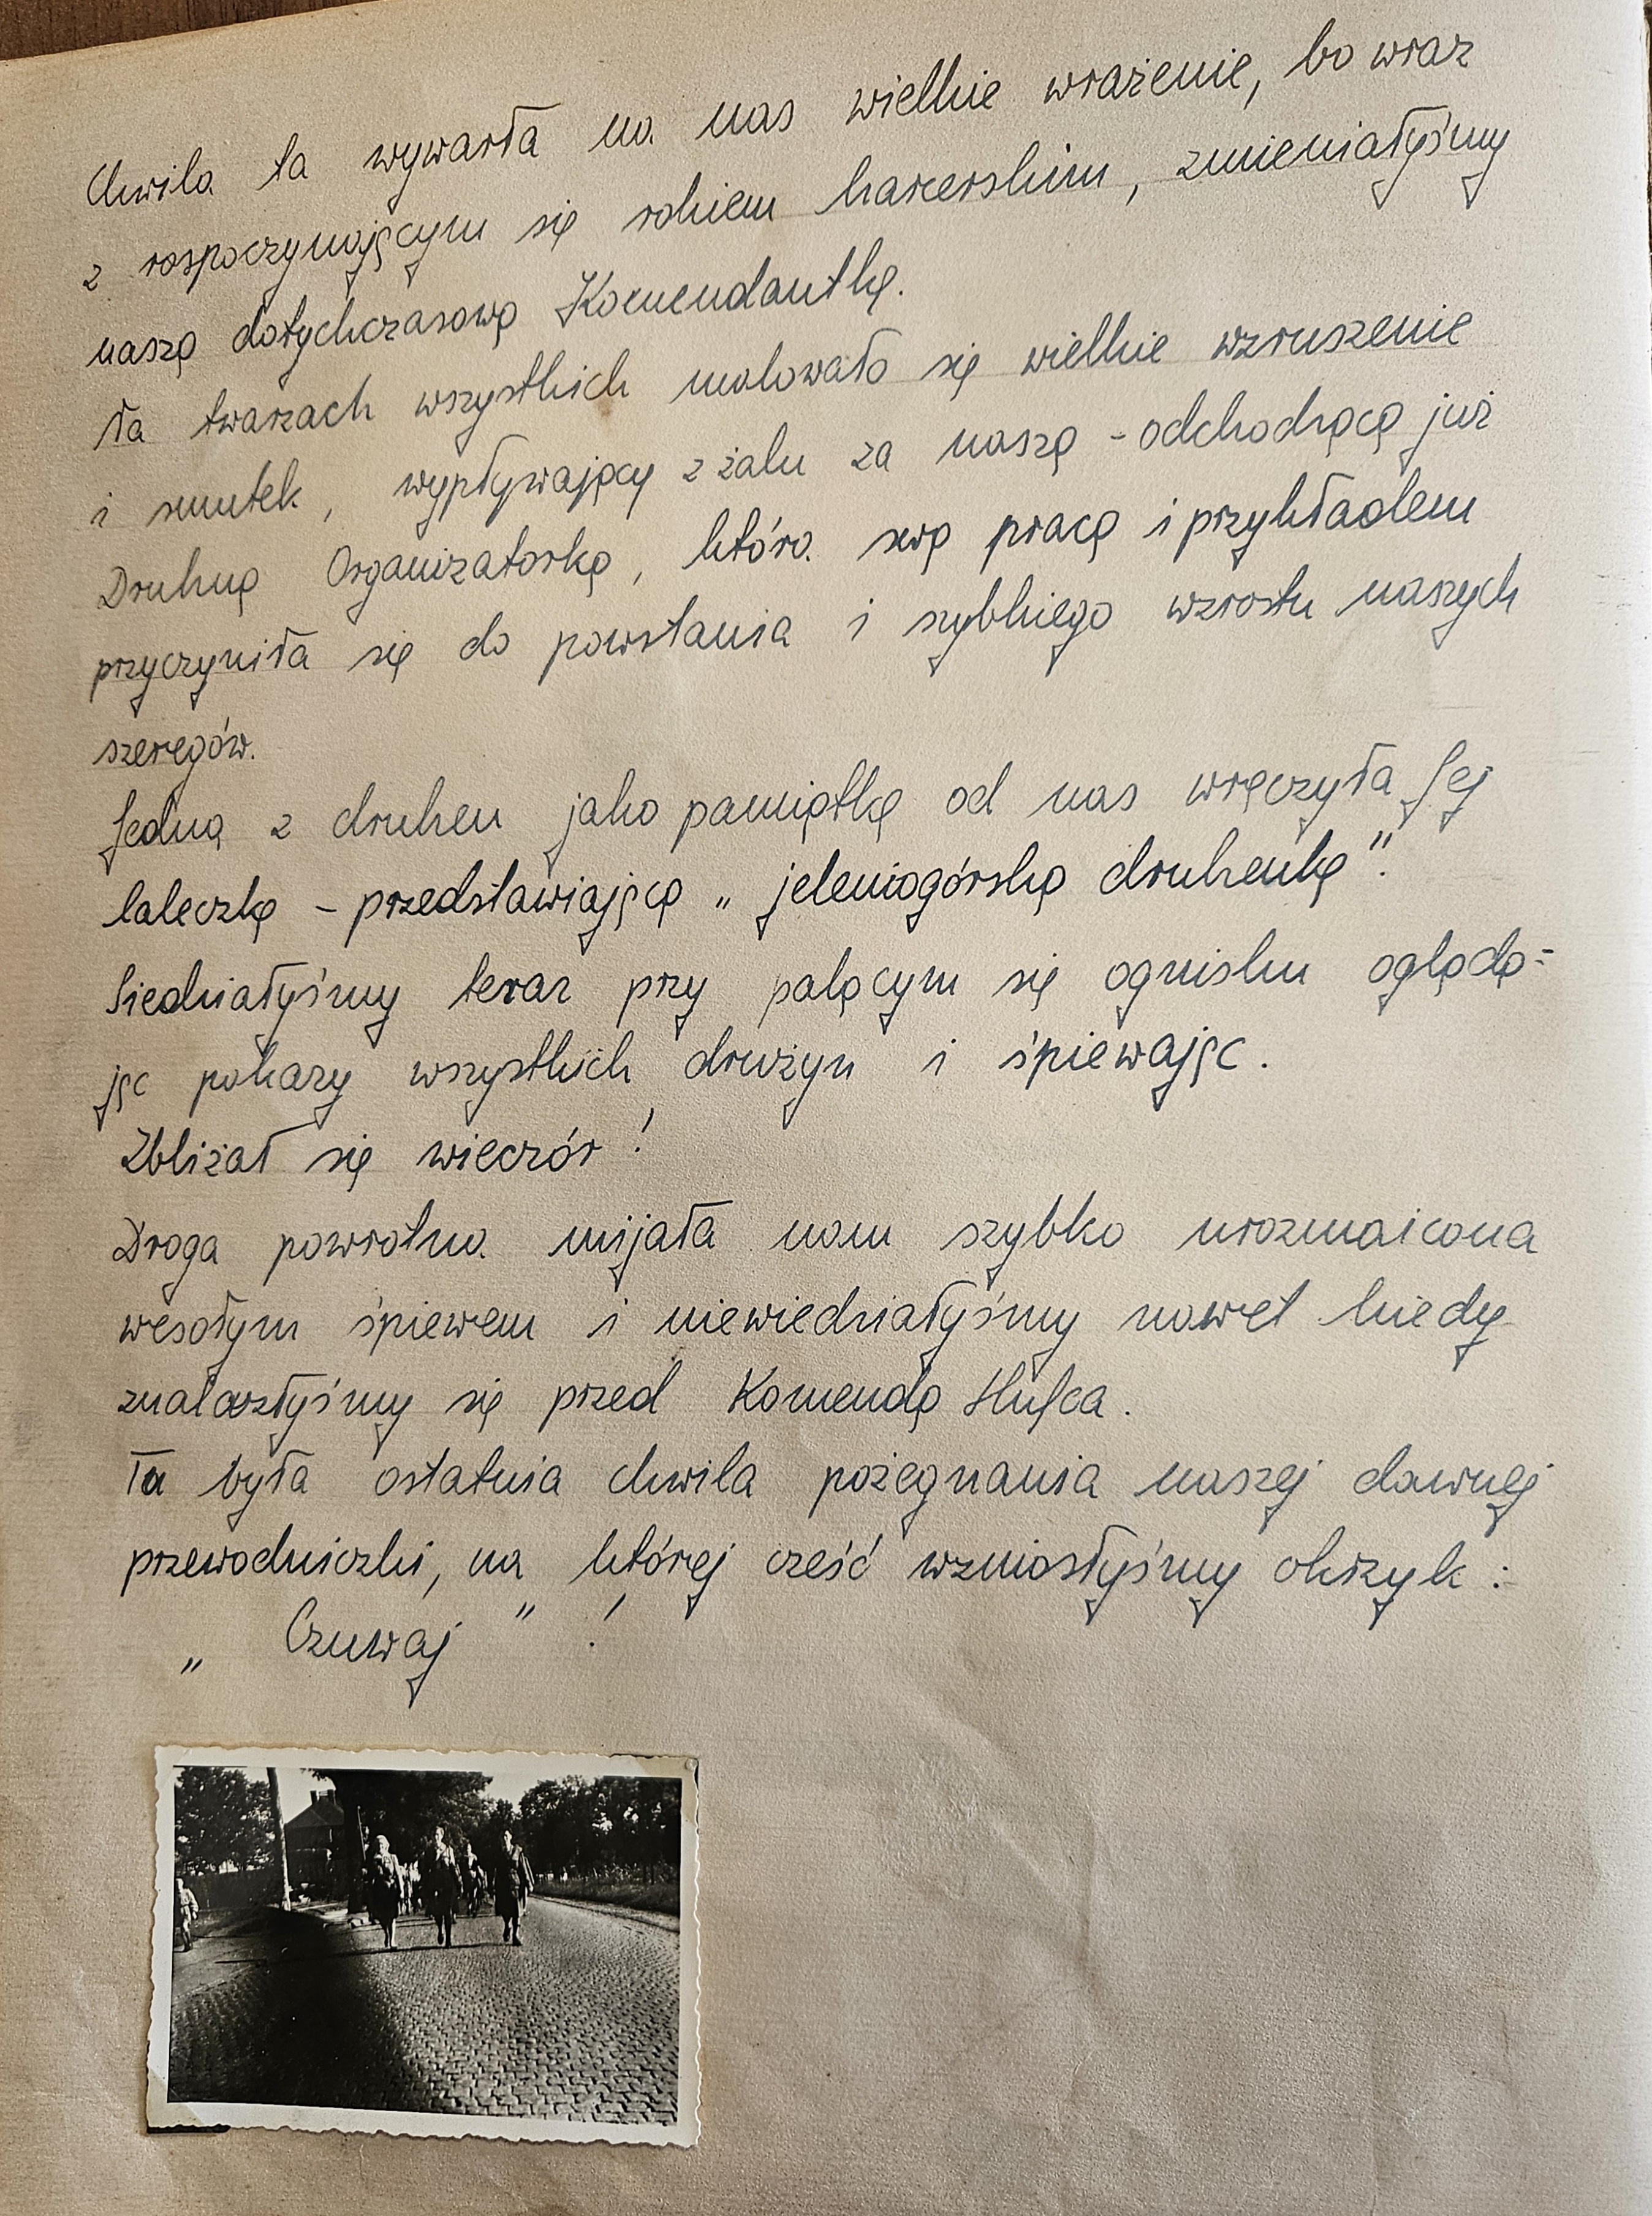 Chwila ta wywarła na nas wielkie wrażenie, bo wraz
z rospoczynającym się rokiem harcerskim, zmieniałyśmy
naszą dotychczasową Komendantkę.
Na twarzach wszystkich malowało się wielkie wzruszenie
i smutek, wypływający z żalu za naszą - odchodzącą już
Druhną Organizatorką, która swą pracą i przykładem
przyczyniła się do powstania i szybkiego wzrostu naszych
szeregów.
Jedna z druhen jako pamiątkę od nas wręczyła Jej
laleczkę - przedstawiającą „jeleniogórską druhenkę".
Siedziałyśmy teraz przy palącym się ognisku ogląda-
jąc pokazy wszystkich drużyn i śpiewając.
Zbliżał się wieczór!
Droga powrotna mijała nam szybko urozmaicona
wesołym śpiewem i niewiedziałyśmy nawet kiedy
znalazłyśmy się przed Komendą Hufca.
Tu była ostatnia chwila pożegnania naszej dawnej
przewodniczki, na której cześć wzniosłyśmy okrzyk:
„Czuwaj"!